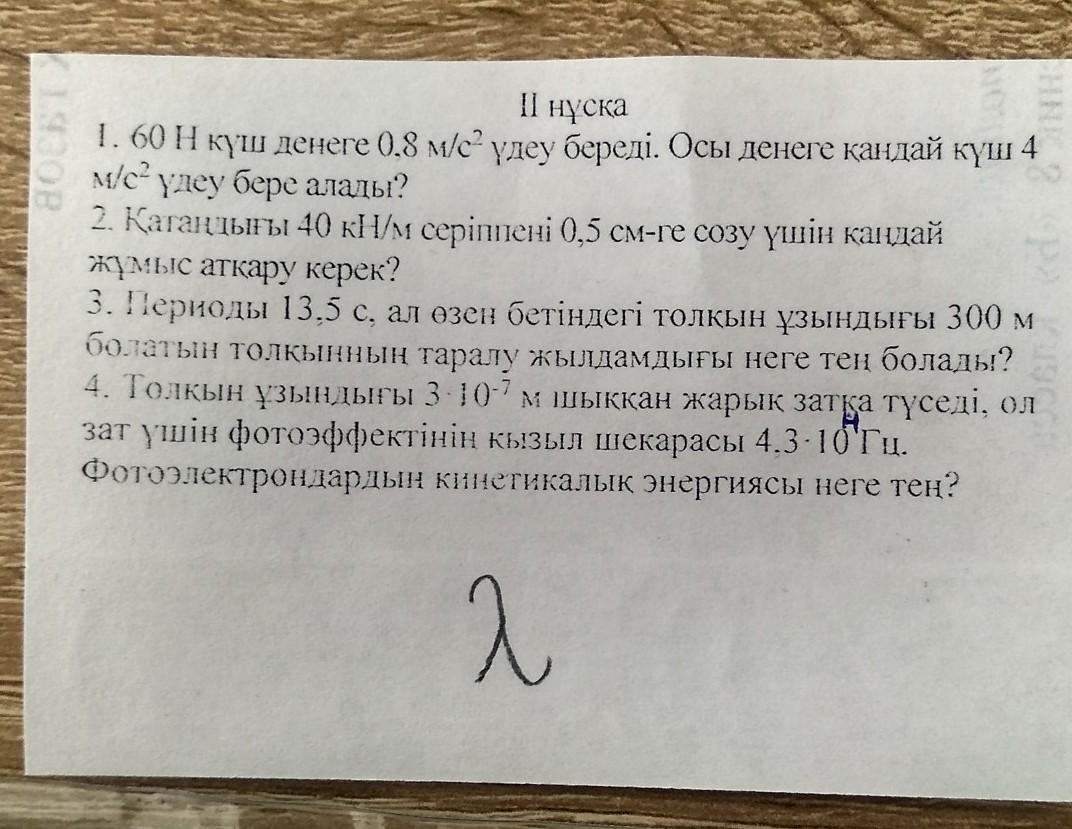 II нұсқа
1. 60 Н күш денеге 0,8 м/с² үдеу береді. Осы денеге қандай күш 4
м/с² үдеу бере алады?
2. Қатаңдығы 40 кН/м серіппені 0,5 см-ге созу үшін қандай
жұмыс атқару керек?
3. Периоды 13,5 с, ал өзен бетіндегі толқын ұзындығы 300 м
болатын толқынның таралу жылдамдығы неге тең болады?
4. Толқын ұзындығы 3·10⁻⁷ м шыққан жарық затқа түседі, ол
зат үшін фотоэффектінің қызыл шекарасы 4,3·10 Гц.
Фотоэлектрондардың кинетикалық энергиясы неге тең?
λ